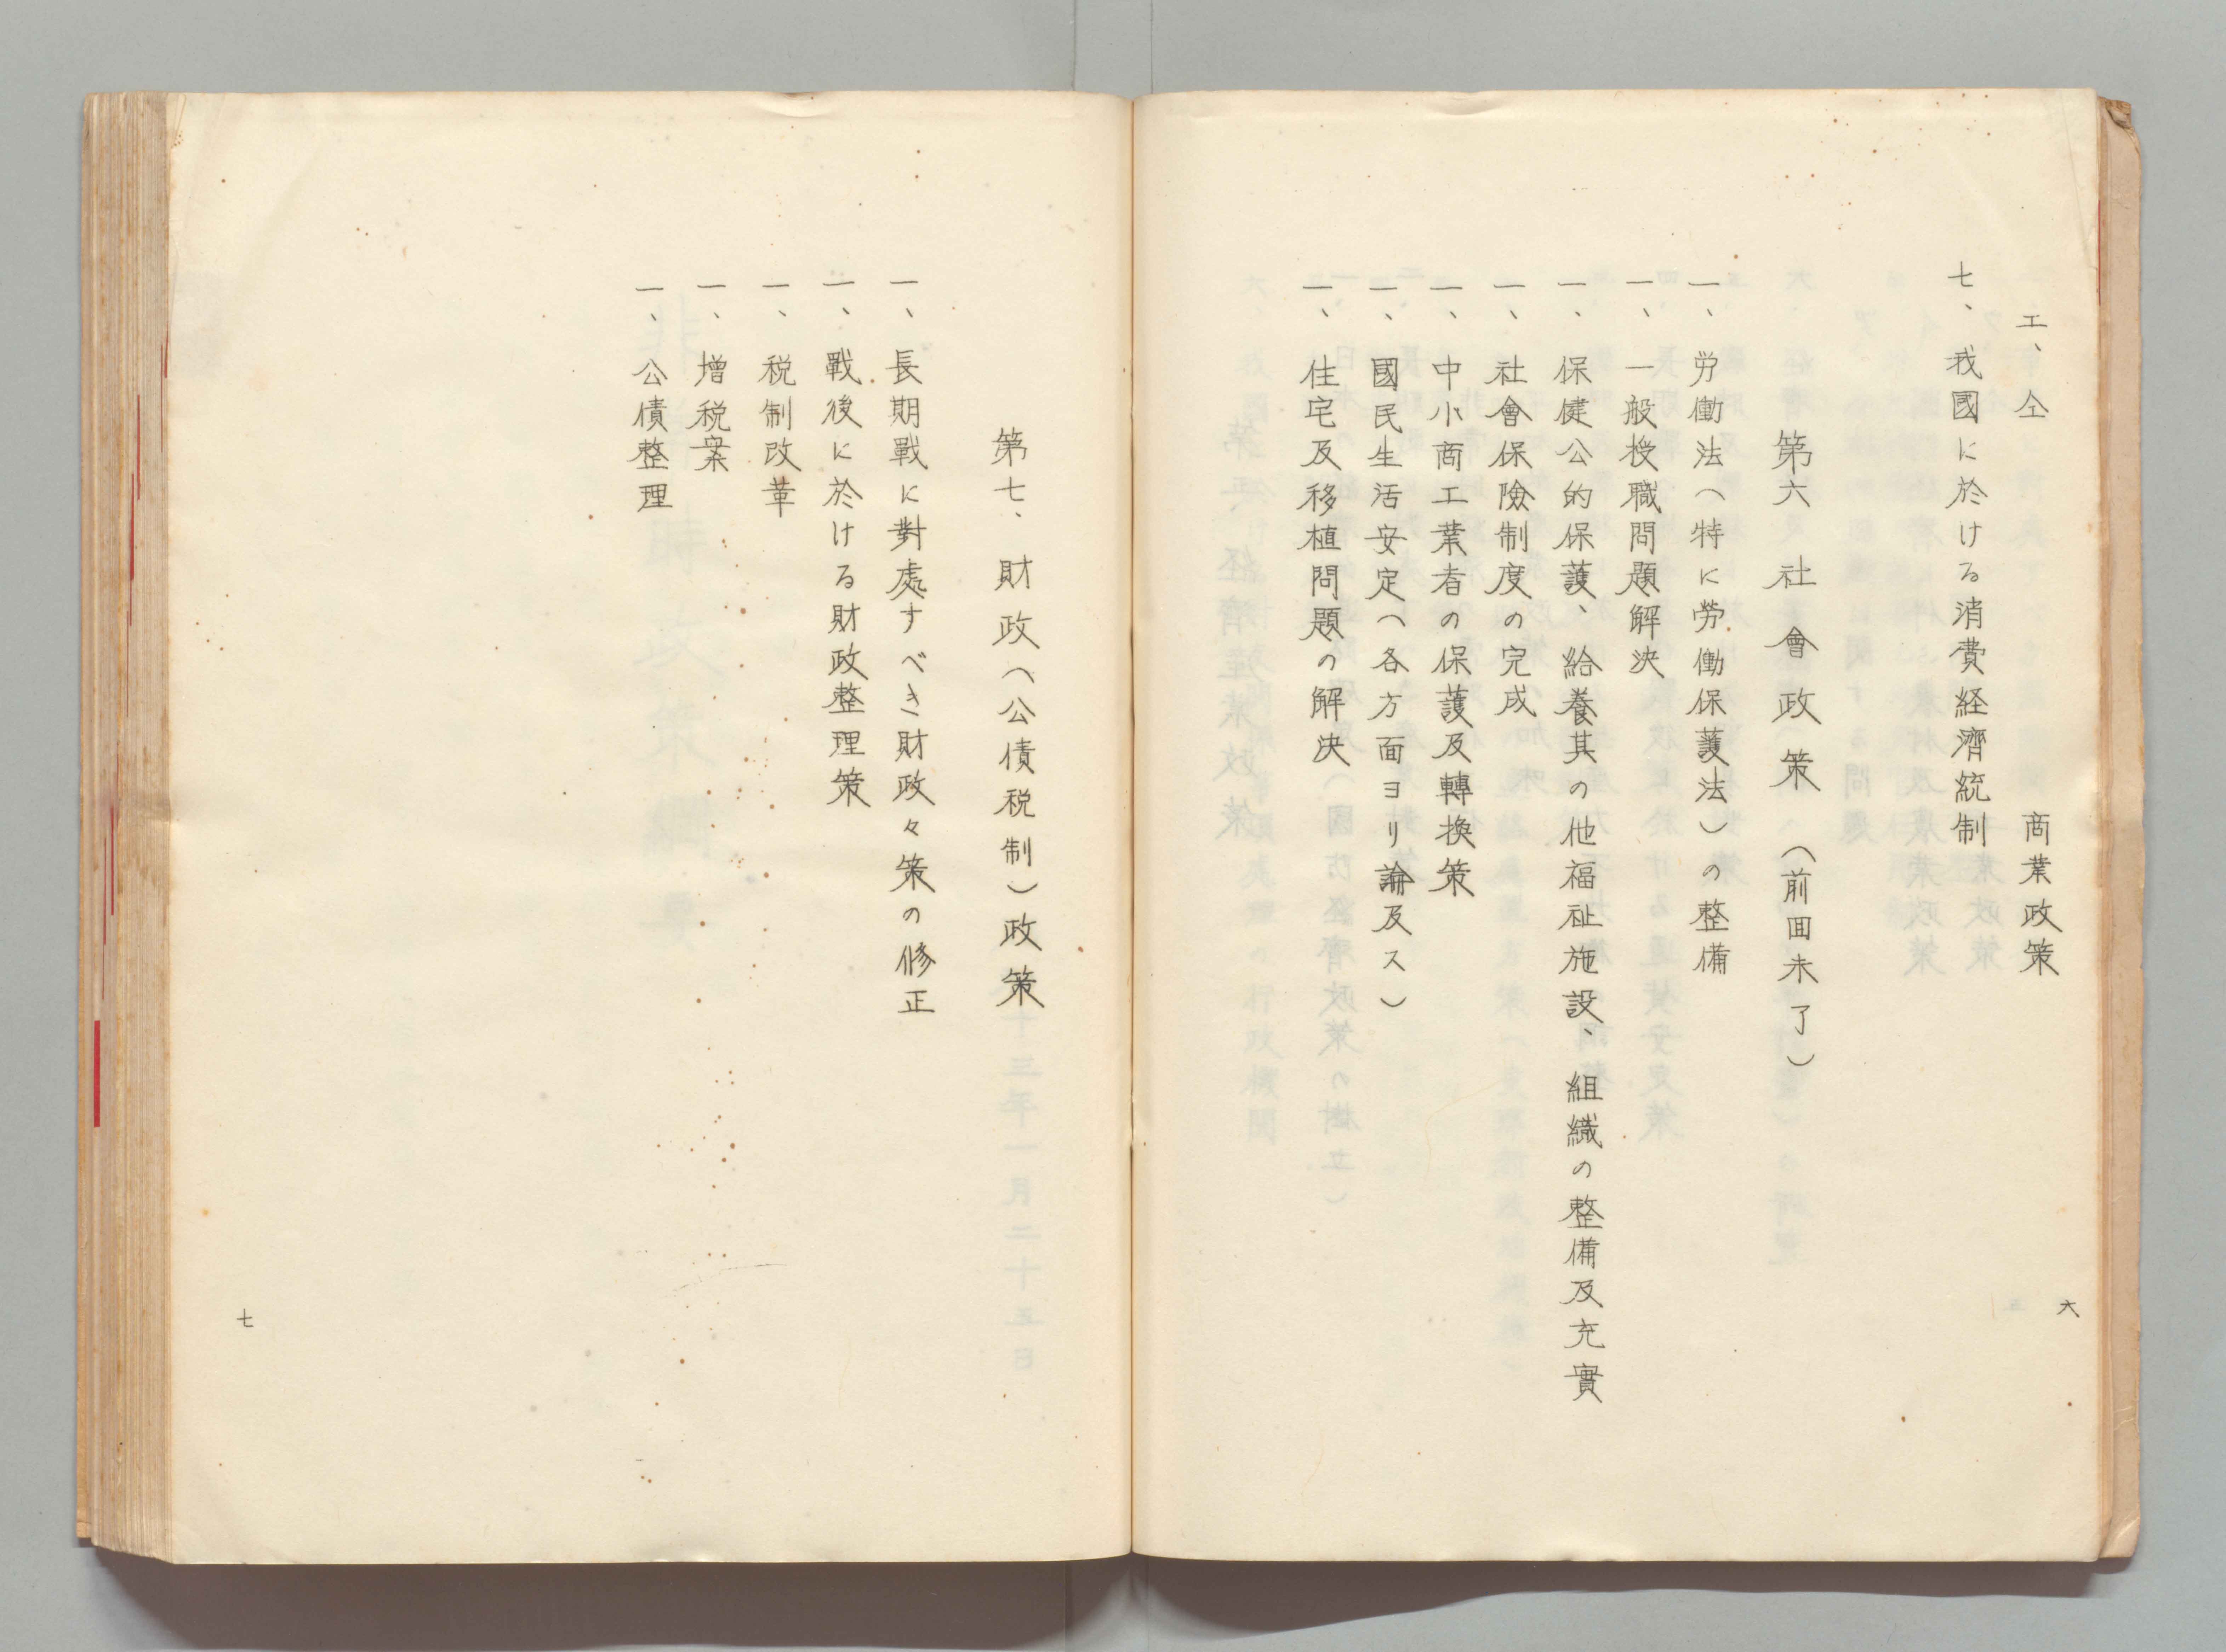 エ、仝　商業政策
七、我國に於ける消費経濟統制
第六　社會政策　（前回未了）
一、労働法（特に労働保護法）の整備
一、一般授職問題解決
一、保健公的保護、給養其の他福祉施設、組織の整備及充實
一、社會保險制度の完成
一、中小商工業者の保護及轉換策
一、國民生活安定（各方面ヨリ論及ス）
一、住宅及移植問題の解決
六
第七、財政（公債税制）政策
一、長期戰に對處すべき財政々策の修正
一、戰後に於ける財政整理策
一、税制改革
一、増税案
一、公債整理
七